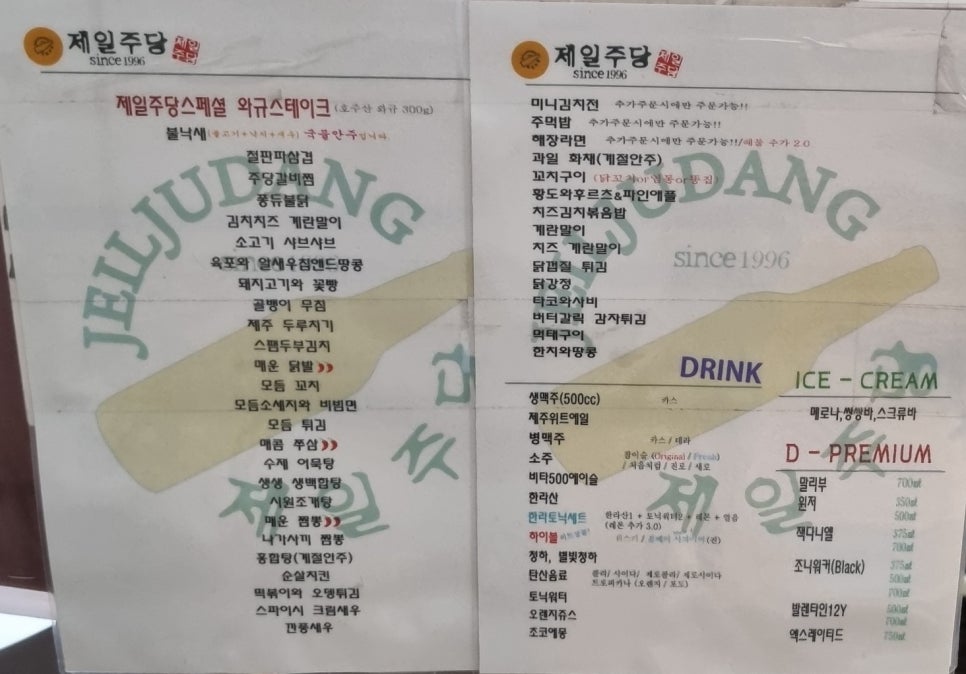 제일주당
since 1996
제일주당스페셜 와규스테이크 (호주산 와규 300g)
불낙새(불고기+낙지+새우) 국물안주입니다.
철판파삼겹
주당갈비찜
퐁듀불닭
김치치즈 계란말이
소고기 샤브샤브
육포와 알새우칩앤드땅콩
돼지고기와 꽃빵
골뱅이 무침
제주 두루치기
스팸두부김치
매운 닭발
모듬 꼬치
모듬소세지와 비빔면
모듬 튀김
매콤 쭈삼
수제 어묵탕
생생 생백합탕
시원조개탕
매운 짬뽕
나가사끼 짬뽕
홍합탕(계절안주)
순살치킨
떡볶이와 오뎅튀김
스파이시 크림새우
깐풍새우
JEILJUDANG
제일주당
제일주당
since 1996
미니김치전 추가주문시에만 주문가능!!
주먹밥 추가주문시에만 주문가능!!
해장라면 추가주문시에만 주문가능!!/해물 추가 2.0
과일 화채(계절안주)
꼬치구이 (닭꼬치or염통or똥집)
황도와후르츠&파인애플
치즈김치볶음밥
계란말이
치즈 계란말이
닭껍질 튀김
닭강정
타코와사비
버터갈릭 감자튀김
먹태구이
한치와땅콩
JEILJUDANG
since 1996
제일주당
DRINK
생맥주(500cc) 카스
제주위트에일
병맥주 카스 / 테라
소주 참이슬 (Original / Fresh)
/ 처음처럼 / 진로 / 새로
비타500에이슬
한라산
한라토닉세트 한라산1 + 토닉워터2 + 레몬 + 얼음
(레몬 추가 3.0)
하이볼
청하, 별빛청하
탄산음료 콜라/ 사이다/ 제로콜라/ 제로사이다
트로피카나 (오렌지 / 포도)
토닉워터
오렌지쥬스
초코에몽
ICE - CREAM
메로나,쌍쌍바,스크류바
D - PREMIUM
말리부 700㎖
윈저 350㎖
500㎖
잭다니엘 375㎖
700㎖
조니워커(Black) 375㎖
500㎖
700㎖
발렌타인12Y 500㎖
700㎖
엑스레이티드 750㎖